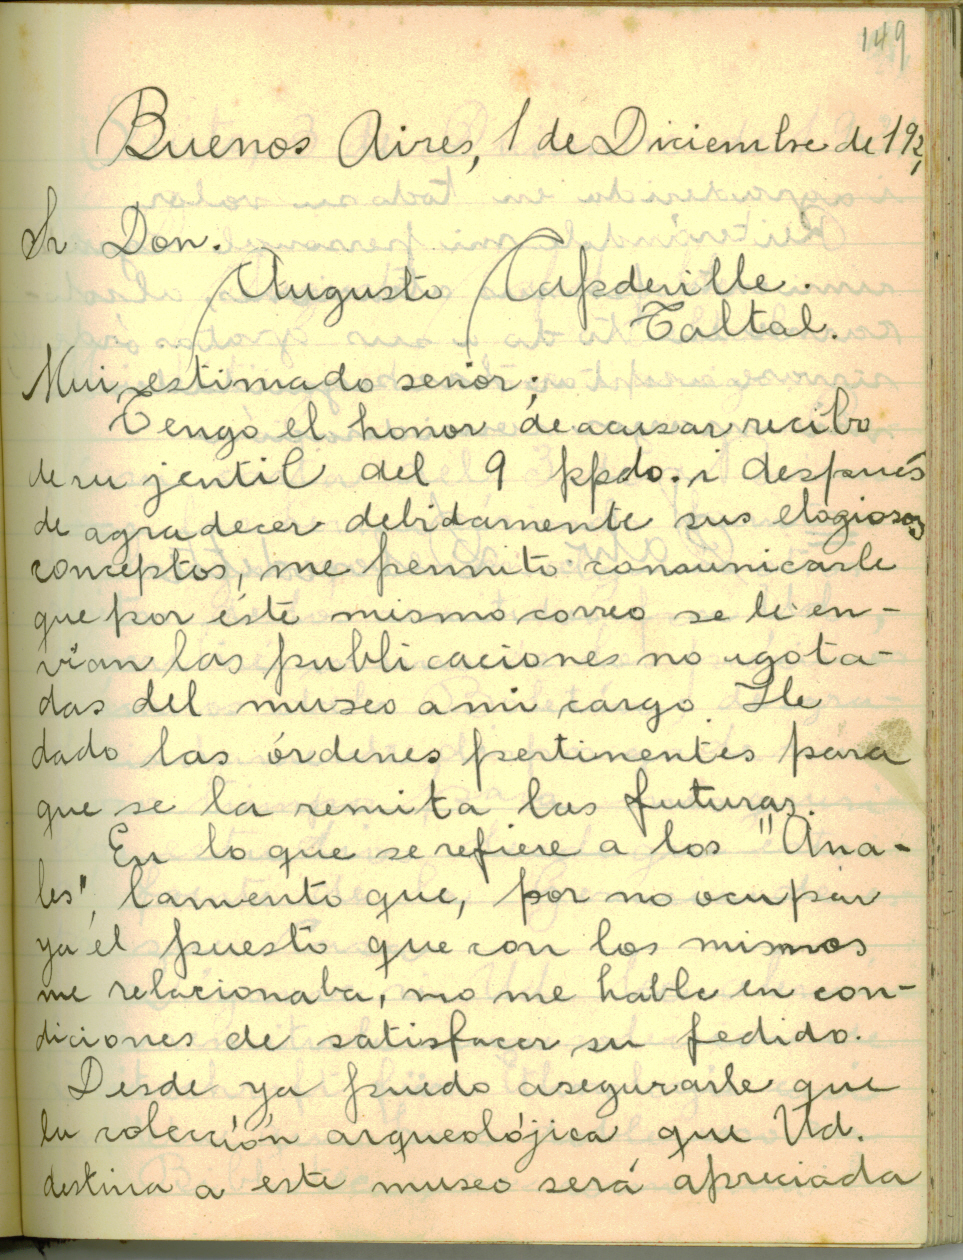 149
Buenos Aires, 1 de Diciembre de 192
Sr Don.
Augusto Capdeville.
Taltal.
Mui estimado señor;
Tengo el honor de acusar recibo
de su jentil del 9 ppdo. i después
de agradecer debidamente sus elogiosos
conceptos, me permito comunicarle
que por éste mismo correo se le en-
vían las publicaciones no agota-
das del museo a mi cargo. He
dado las órdenes pertinentes para
que se la remita las futuras.
En lo que se refiere a los "Ana-
les", lamento que, por no ocupar
ya el puesto que con los mismos
me relacionaba, no me halle en con-
diciones de satisfacer su pedido.
Desde ya puedo asegurarle que
la colección arqueolójica que Ud.
destina a este museo será apreciada